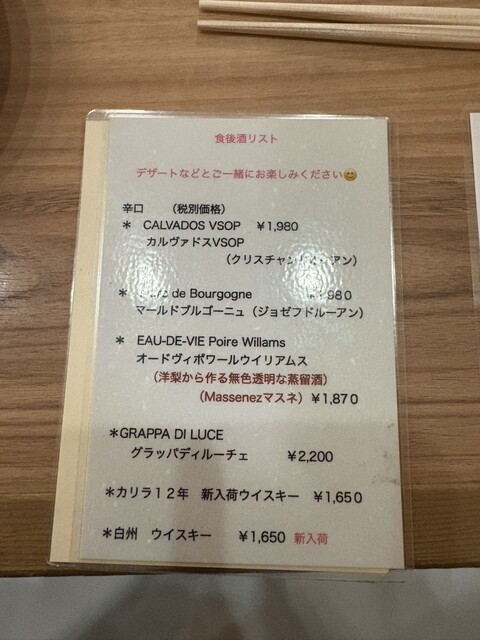 食後酒リスト
デザートなどとご一緒にお楽しみください😊
辛口 (税別価格)
* CALVADOS VSOP ¥1,980
カルヴァドスVSOP
(クリスチャン アン)
* de Bourgogne 980
マールドブルゴーニュ(ジョゼフドルーアン)
* EAU-DE-VIE Poire Willams
オードヴィポワールウイリアムス
(洋梨から作る無色透明な蒸留酒)
(Massenezマスネ) ¥1,870
*GRAPPA DI LUCE
グラッパディルーチェ ¥2,200
*カリラ12年 新入荷ウイスキー ¥1,650
*白州 ウイスキー ¥1,650 新入荷